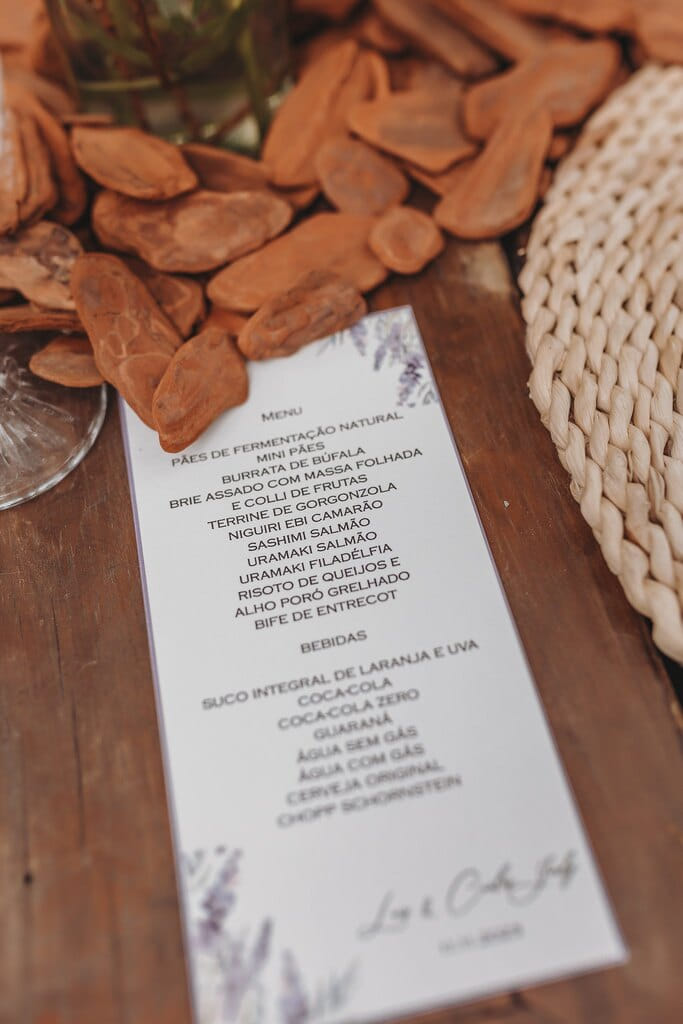 MENU
PÃES DE FERMENTAÇÃO NATURAL
MINI PÃES
BURRATA DE BÚFALA
BRIE ASSADO COM MASSA FOLHADA
E COLLI DE FRUTAS
TERRINE DE GORGONZOLA
NIGUIRI EBI CAMARÃO
SASHIMI SALMÃO
URAMAKI SALMÃO
URAMAKI FILADÉLFIA
RISOTO DE QUEIJOS E
ALHO PORÓ GRELHADO
BIFE DE ENTRECOT
BEBIDAS
SUCO INTEGRAL DE LARANJA E UVA
COCA-COLA
COCA-COLA ZERO
GUARANÁ
ÁGUA SEM GÁS
ÁGUA COM GÁS
CERVEJA ORIGINAL
CHOPP SCHORNSTEIN
&